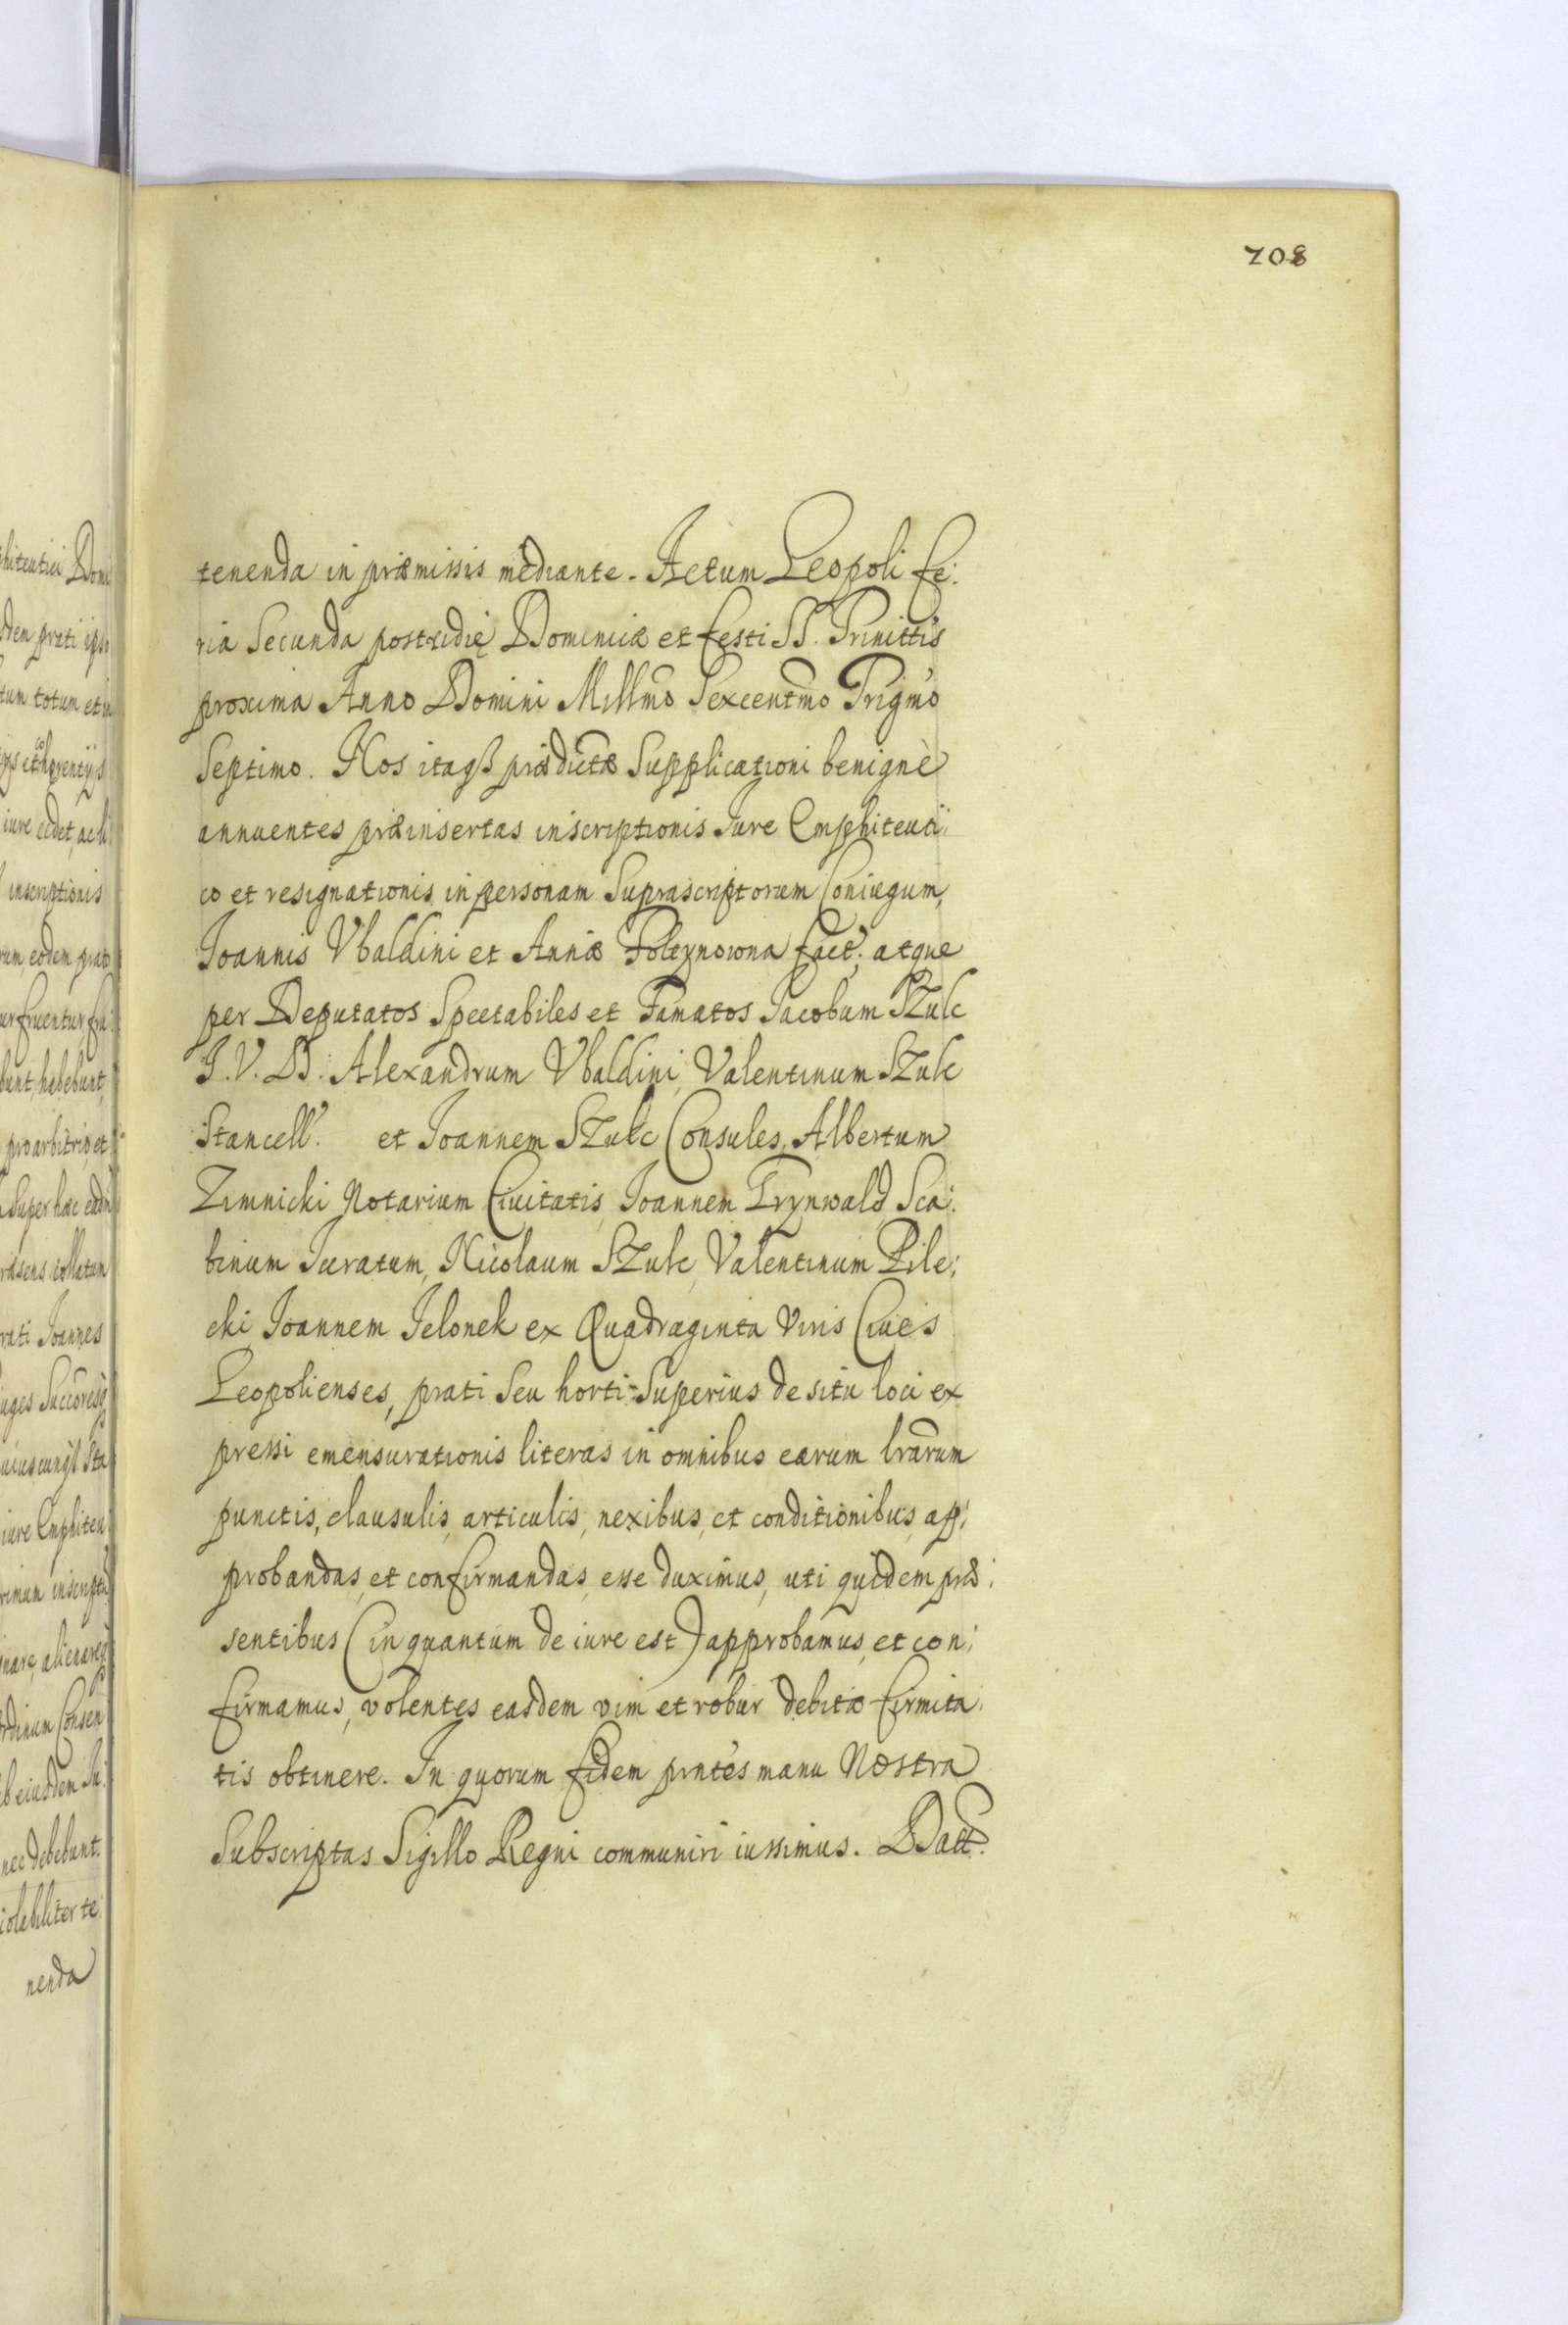 708
tenenda in præmissis mediante. Actum Leopoli fe:
ria Secunda postridię Dominicæ et festi SS. Trinittis
proxima Anno Domini Millmo Sexcentmo Trigmo
Septimo. Nos itaqß prædictæ Supplicationi benignè
annuentes præinsertas inscriptionis Iure Emphiteuti:
co et resignationis in personam Suprascriptorum Coniugum,
Ioannis Vbaldini et Annæ fact: atque
per Deputatos Spectabiles et Famatos Iacobum Szulc
I.V.D: Alexandrum Vbaldini, Valentinum Szulc
Stancell. et Ioannem Szulc Consules, Albertum
Zimnicki Notarium Ciuitatis, Ioannem Grynwald Sca:
binum Iuratum, Nicolaum Szulc, Valentinum Pile:
cki Ioannem Jelonek ex Quadraginta Viris Ciues
Leopolienses, prati Seu horti Superius de situ loci ex
pressi emensurationis literas in omnibus earum lrarum
punctis, clausulis, articulis, nexibus, et conditionibus, ap:
probandas, et confirmandas, esse duximus, uti quidem præ:
sentibus (in quantum de iure est) approbamus, et con:
firmamus, volentes easdem vim et robur debitæ firmita:
tis obtinere. In quorum fidem pntes manu Nostra
Subscriptas Sigillo Regni communiri iussimus. Datt.
phitentici Domi
prati ipso
tum totum et in
iure cedet, ac
inscriptionis
eodem prato
habebunt,
pro arbitrio, et
Super hac
collatum
Ioannes
iure Emphiten
Consen
eiusdem
nec debebunt.
te:
nenda